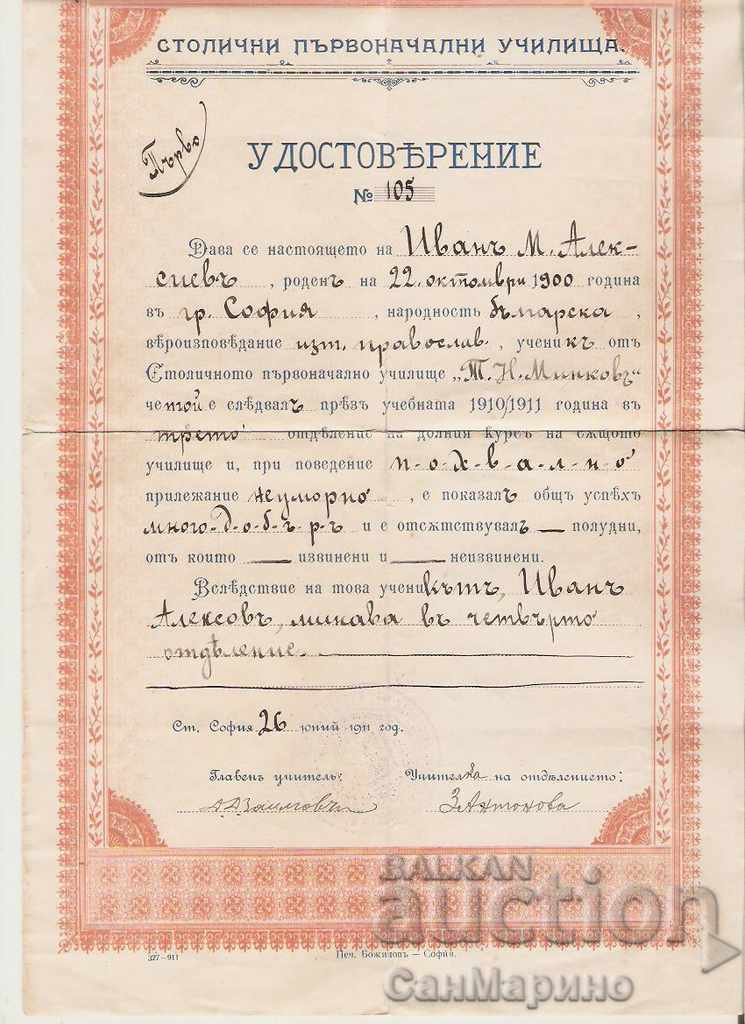 СТОЛИЧНИ ПЪРВОНАЧАЛНИ УЧИЛИЩА.
Първо
УДОСТОВѢРЕНИЕ
№ 105
Дава се настоящето на Иванъ М. Алек-
сиевъ, роденъ на 22. октомври 1900 година
въ гр. София, народность българска,
вѣроизповѣдание изт. православ., ученикъ отъ
Столичното първоначално училище „Т. Н. Минковъ“
че той е слѣдвалъ прѣзъ учебната 1910/1911 година въ
трето отдѣление на долния курсъ на сѫщото
училище и, при поведение п-о-х-в-а-л-н-о
прилежание неуморно, е показалъ общъ успѣхъ
много-д-о-б-ъ-р-ъ и е отсѫтствувалъ — полудни,
отъ които — извинени и — неизвинени.
Вслѣдствие на това ученикътъ, Иванъ
Алексовъ, минава въ четвърто
отдѣление.
Ст. София 26 юний 1911 год.
Главенъ учитель: Учителка на отдѣлението:
ЗАнтонова
327—911 Печ. Божиновъ — София.
BALKAN
auction
СанМарино